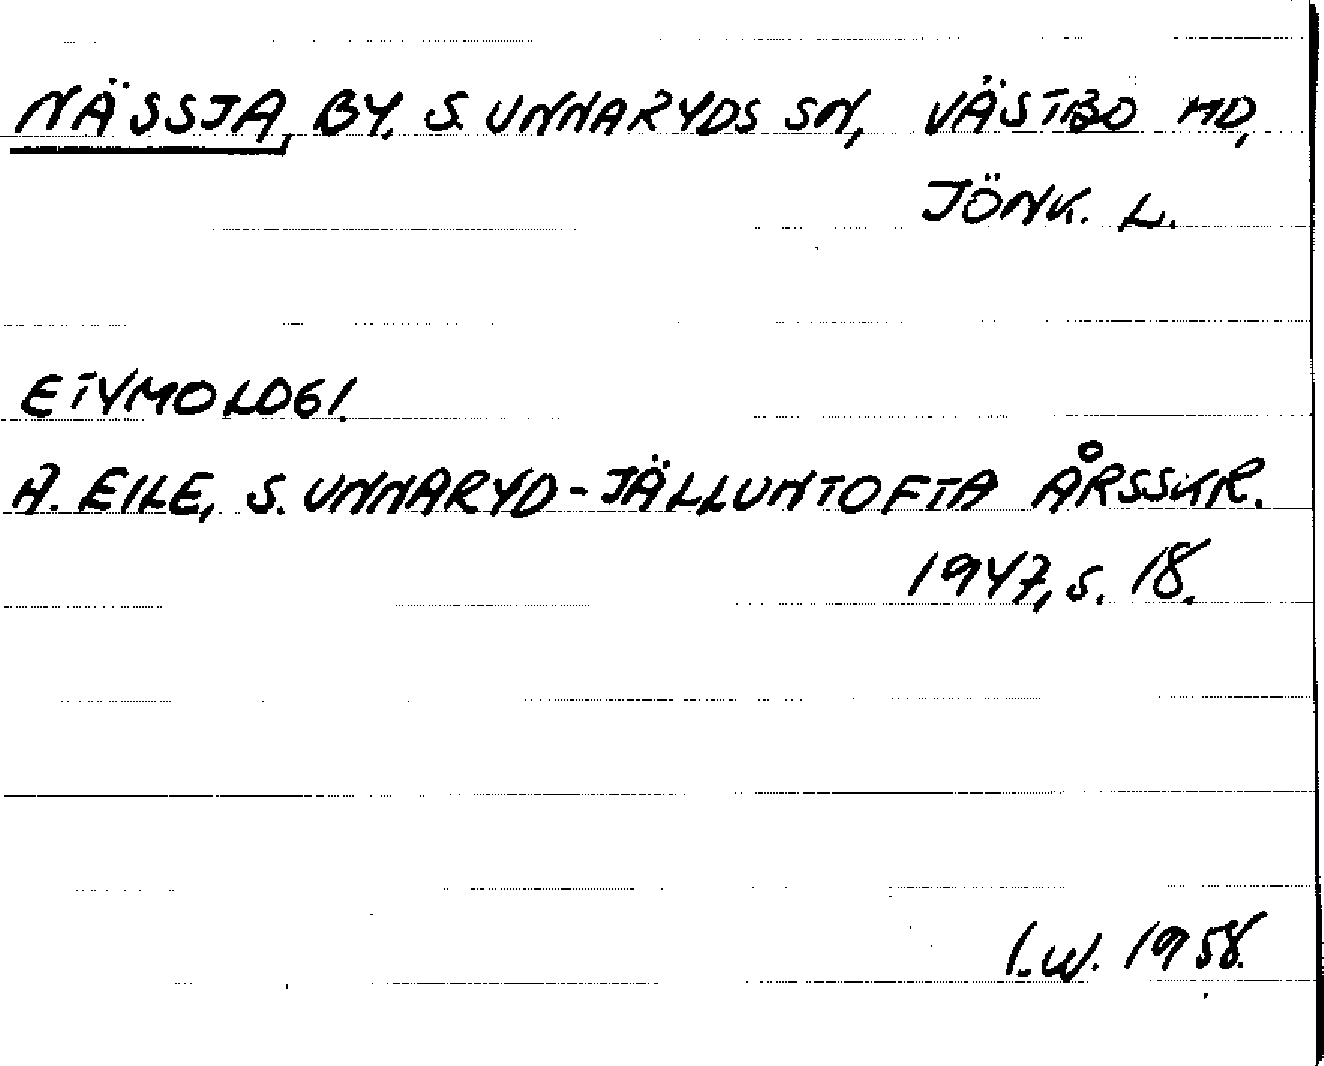 NÄSSJA, BY, S. UNNARYDS SN, VÄSTBO HD,
JÖNK. L.
ETYMOLOGI.
A. EILE, S. UNNARYD-JÄLLUNTOFTA ÅRSSKR.
1947, s. 18.
I.W. 1958.